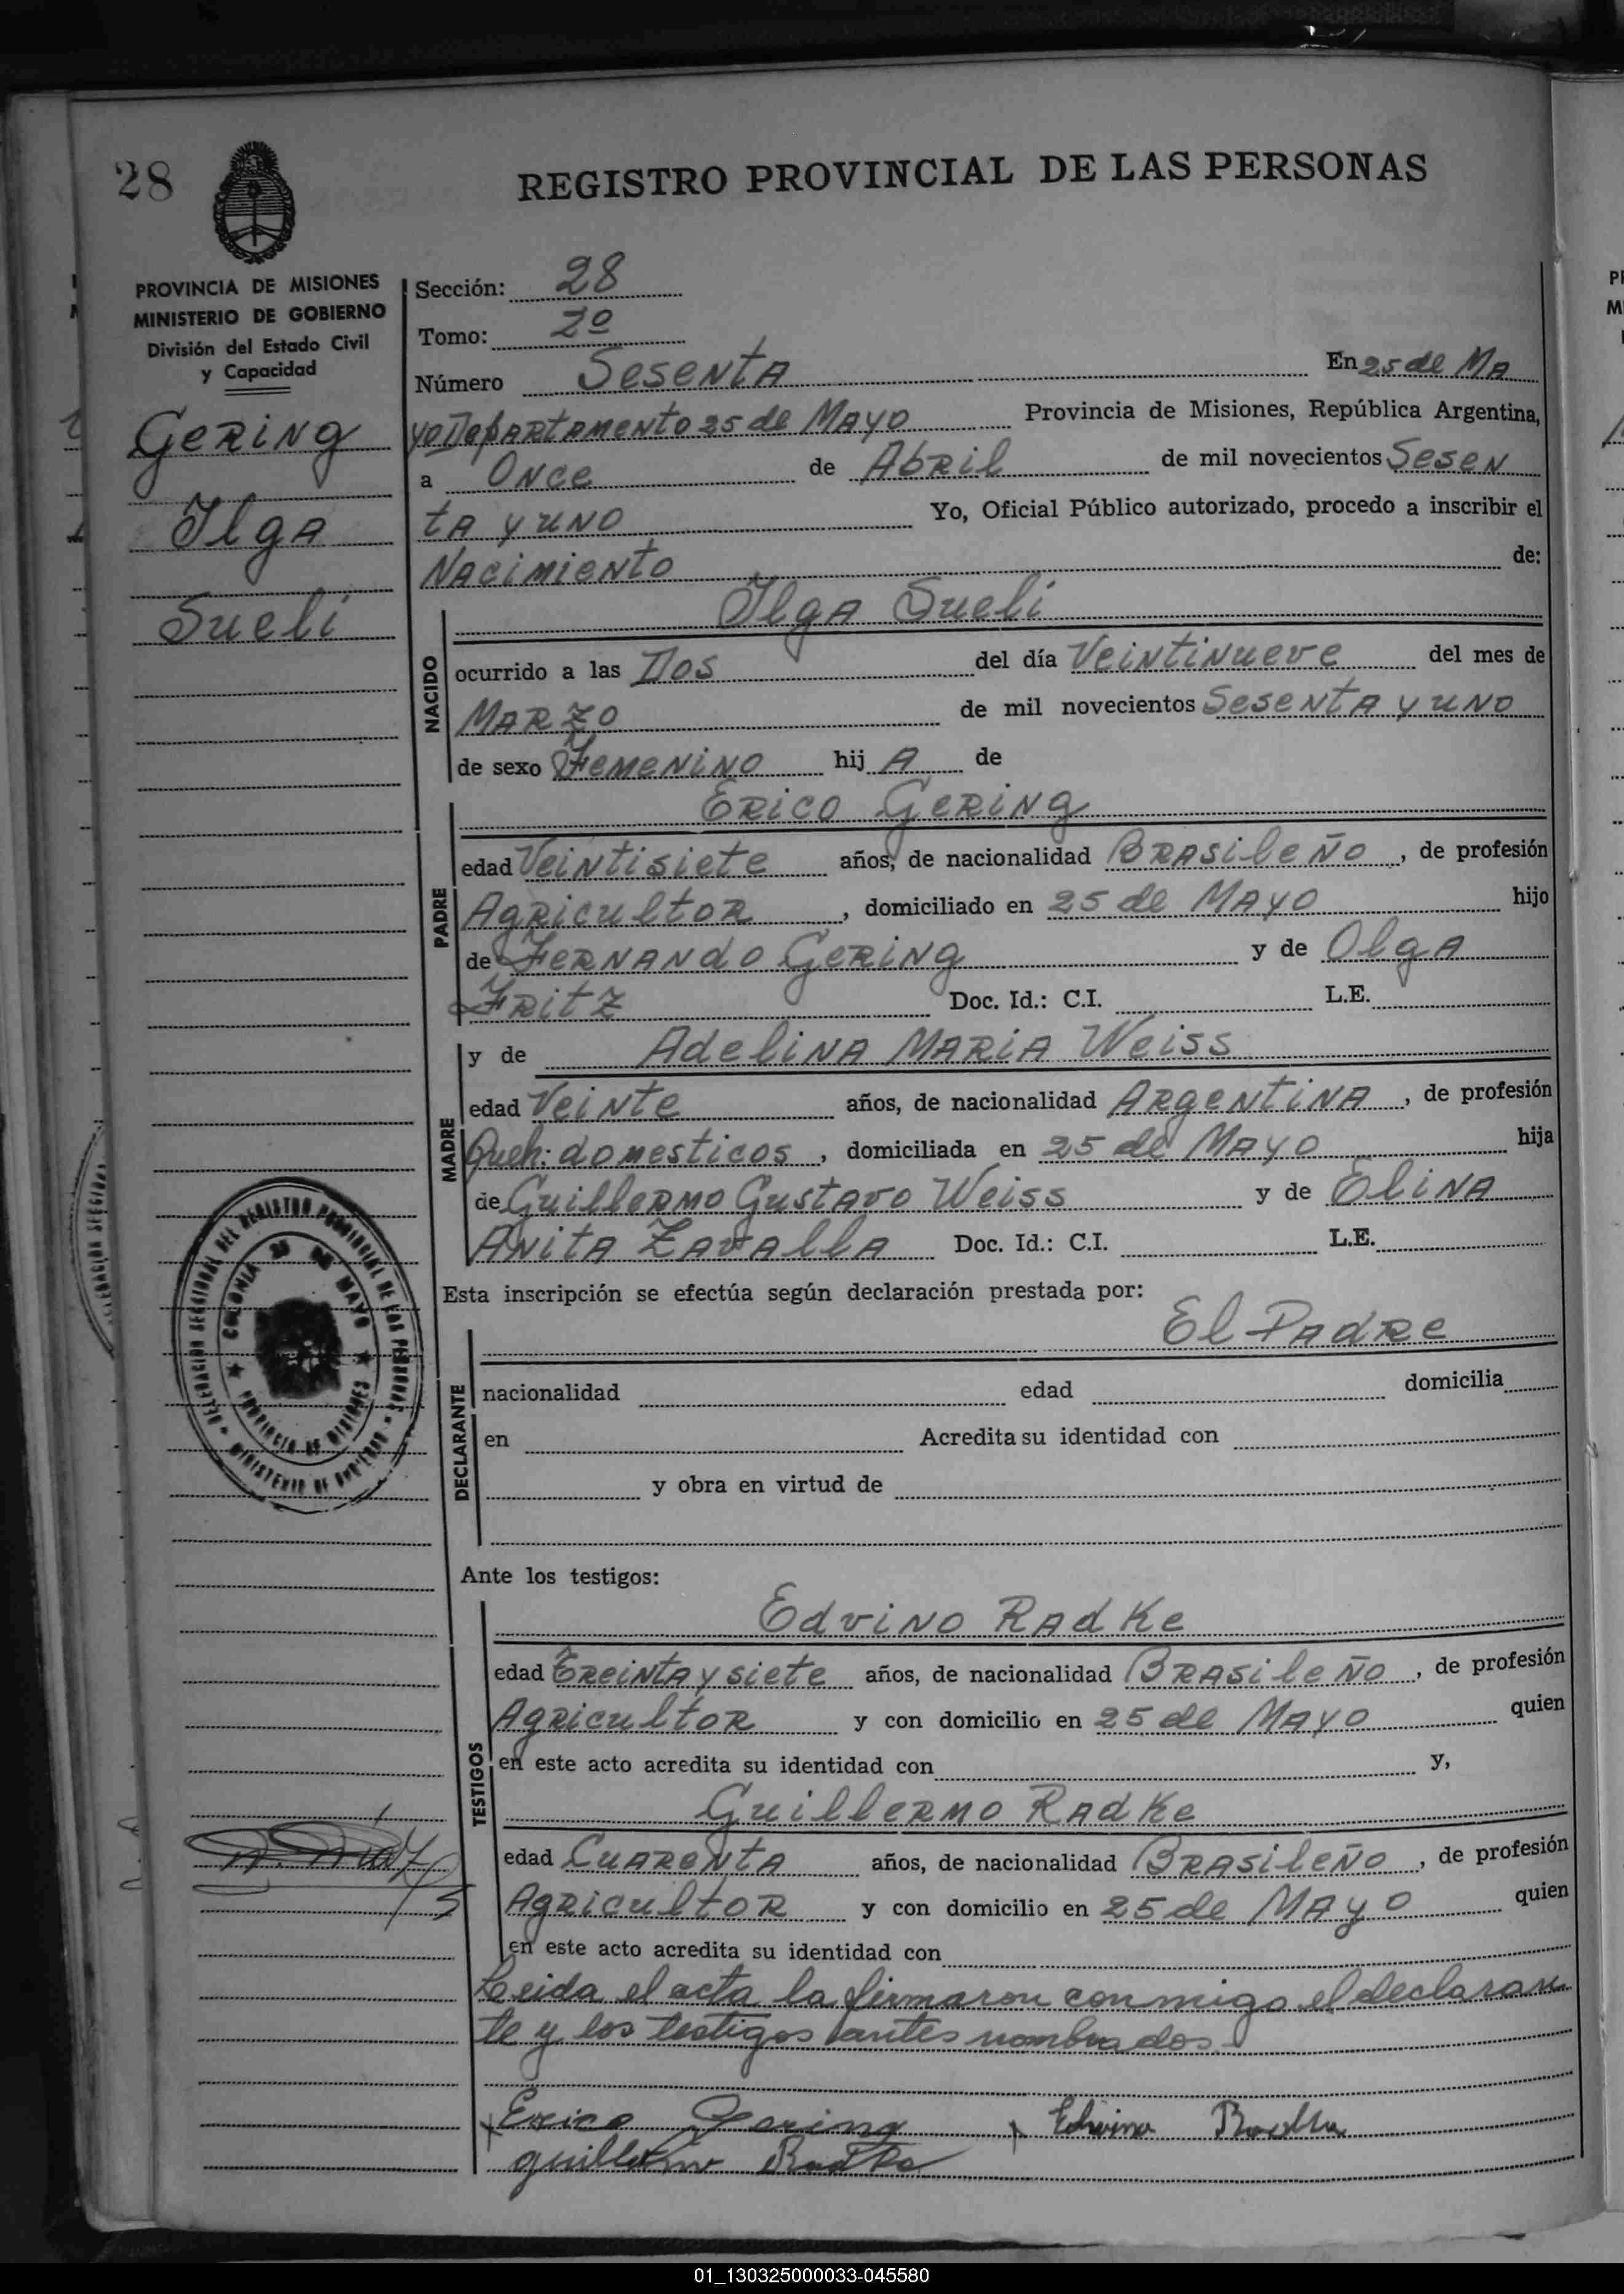 28
REGISTRO PROVINCIAL DE LAS PERSONAS
PROVINCIA DE MISIONES
MINISTERIO DE GOBIERNO
División del Estado Civil
y Capacidad
Gering
Ilga
Sueli
Sección: 28
Tomo: 2º
Número Sesenta En 25 de Ma
yo Departamento 25 de Mayo Provincia de Misiones, República Argentina,
a Once de Abril de mil novecientos Sesen
ta y uno Yo, Oficial Público autorizado, procedo a inscribir el
Nacimiento de:
Ilga Sueli
NACIDO
ocurrido a las Dos del día Veintinueve del mes de
Marzo de mil novecientos Sesenta y uno
de sexo Femenino hij A de
Erico Gering
PADRE
edad Veintisiete años, de nacionalidad Brasileño, de profesión
Agricultor, domiciliado en 25 de Mayo hijo
de Fernando Gering y de Olga
Fritz Doc. Id.: C.I. L.E.
y de Adelina Maria Weiss
MADRE
edad Veinte años, de nacionalidad Argentina, de profesión
Queh: domesticos, domiciliada en 25 de Mayo hija
de Guillermo Gustavo Weiss y de Elina
Anita Zavalla Doc. Id.: C.I. L.E.
Esta inscripción se efectúa según declaración prestada por:
El Padre
DECLARANTE
nacionalidad edad domicilia
en Acredita su identidad con
y obra en virtud de
DELEGACION SECCIONAL DEL REGISTRO PROVINCIAL DE LAS PERSONAS
MINISTERIO DE GOBIERNO
COLONIA 25 DE MAYO
PROVINCIA DE MISIONES
Ante los testigos:
Edvino Radke
TESTIGOS
edad Treinta y siete años, de nacionalidad Brasileño, de profesión
Agricultor y con domicilio en 25 de Mayo quien
en este acto acredita su identidad con y,
Guillermo Radke
edad Cuarenta años, de nacionalidad Brasileño, de profesión
Agricultor y con domicilio en 25 de Mayo quien
en este acto acredita su identidad con
Leida el acta la firmaron conmigo el declaran
te y los testigos antes nombrados.
Erico Gering Edwino Radke
Guillermo Radke
01_130325000033-045580